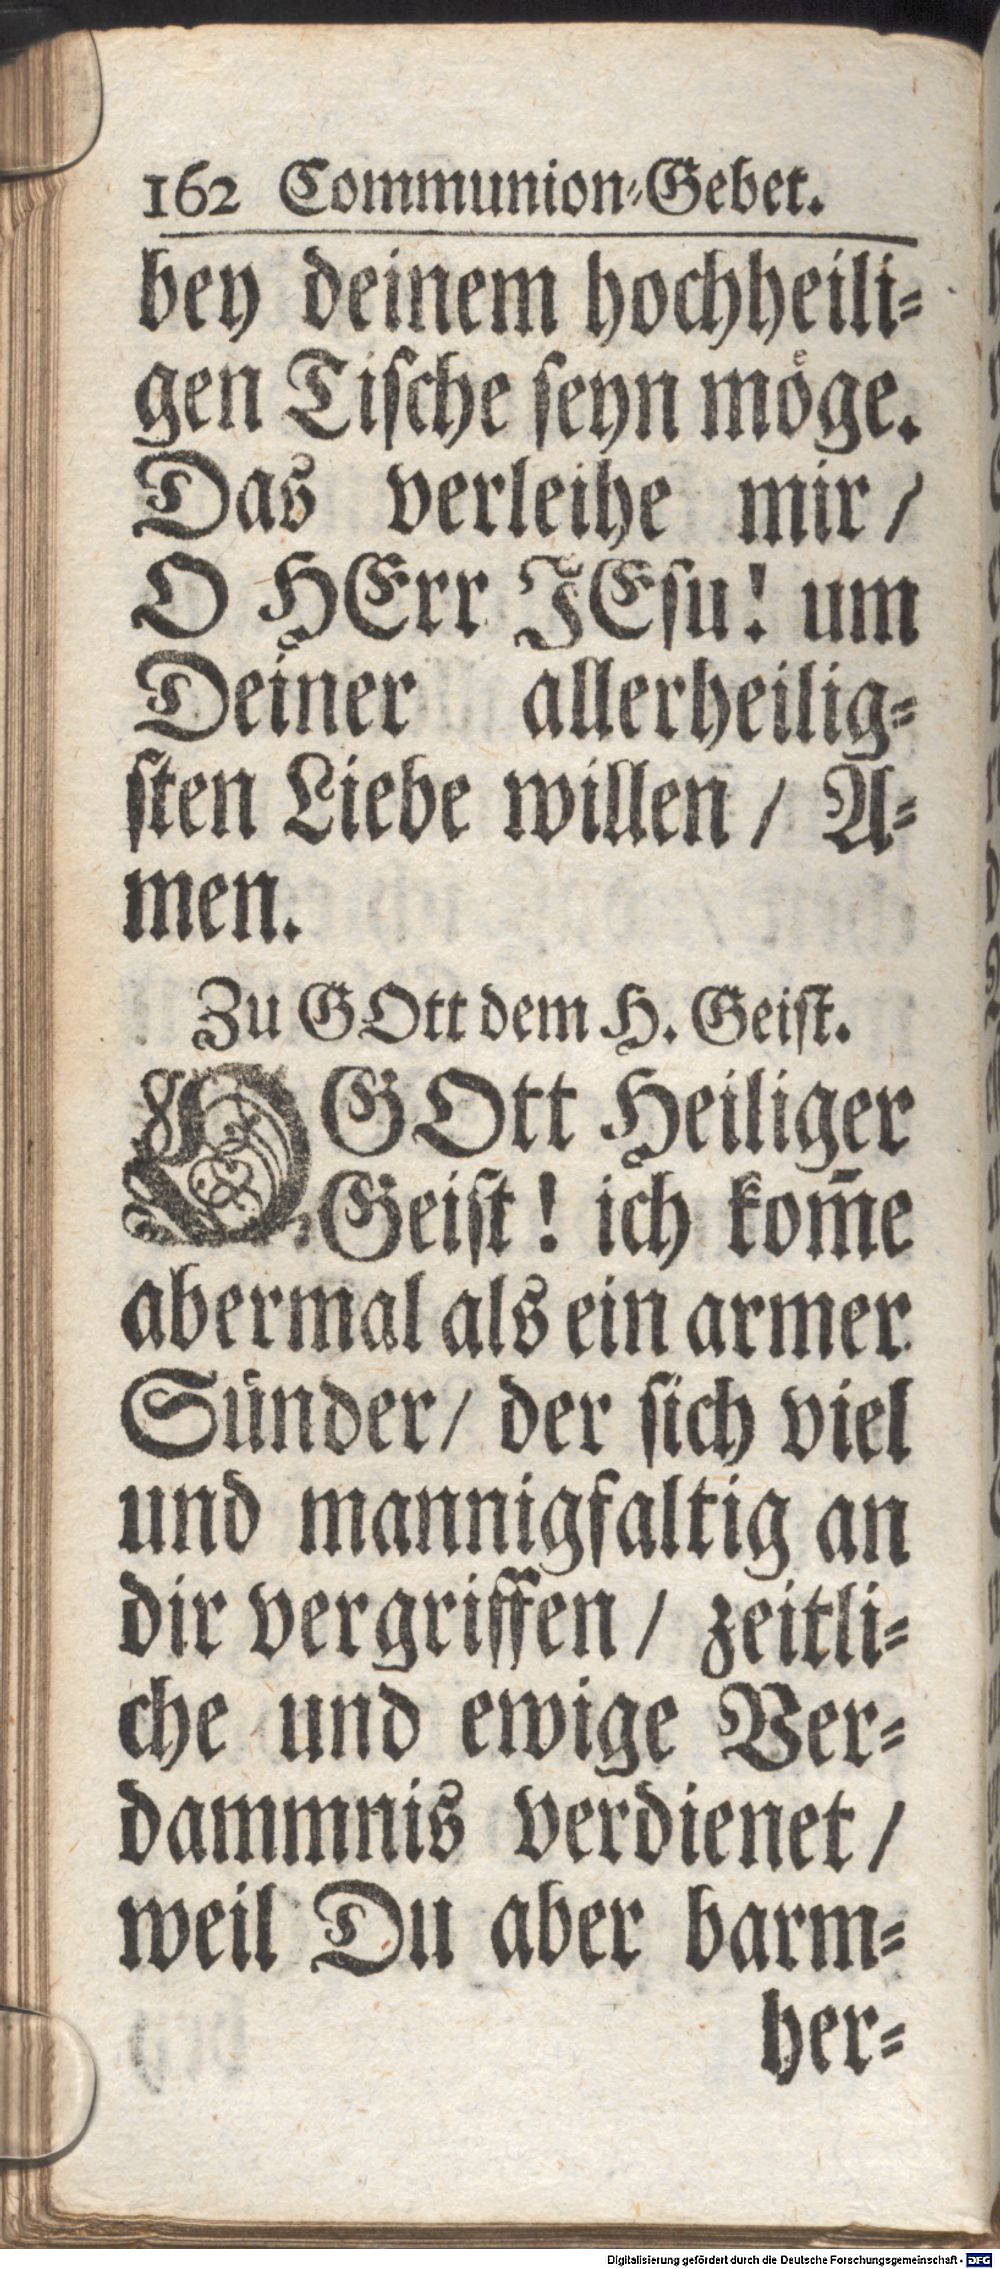 162 Communion-Gebet.
bey deinem hochheili-
gen Tische seyn möge.
Das verleihe mir /
O HErr JEsu! um
Deiner allerheilig-
sten Liebe willen / A-
men.
Zu GOtt dem H. Geist.
O GOtt Heiliger
Geist! ich kom̄e
abermal als ein armer
Sünder / der sich viel
und mannigfaltig an
dir vergriffen / zeitli-
che und ewige Ver-
dammnis verdienet /
weil Du aber barm-
her-
Digitalisierung gefördert durch die Deutsche Forschungsgemeinschaft - DFG